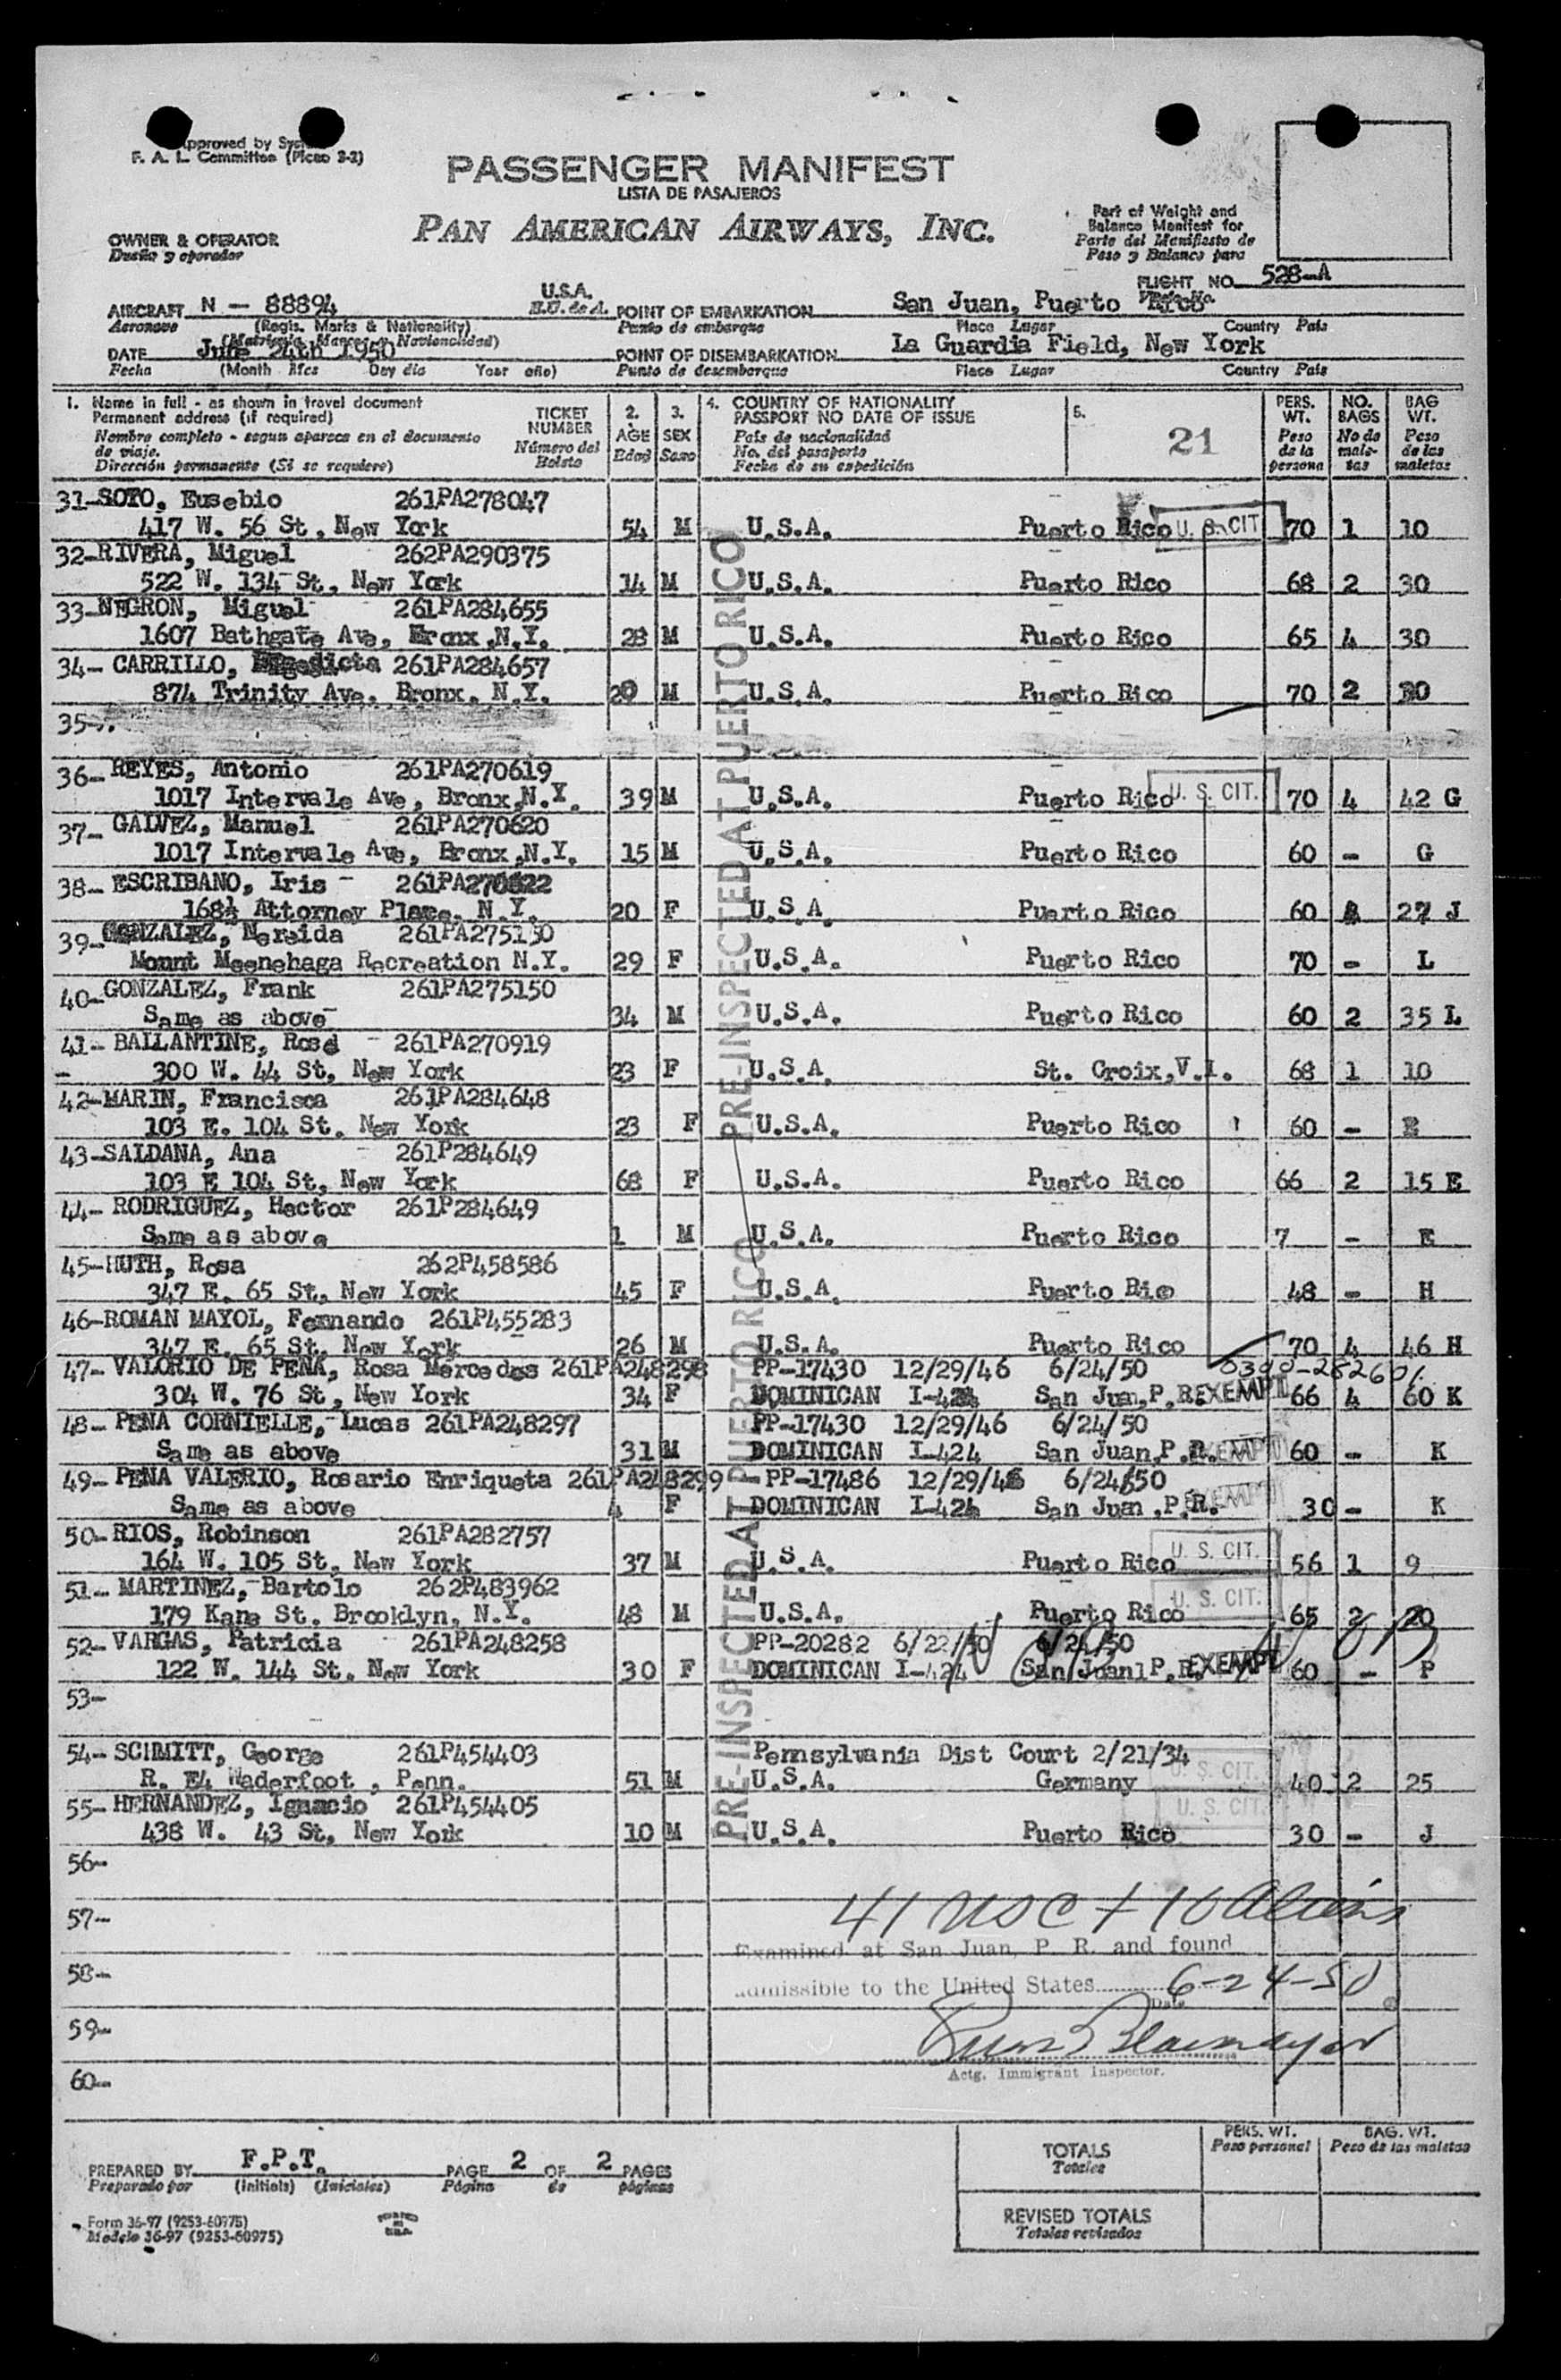 Approved by
F. A. L. Committee (Picao 3-2)
PASSENGER MANIFEST
LISTA DE PASAJEROS
PAN AMERICAN AIRWAYS, INC.
Part of Weight and
Balance Manifest for
Parte del Manifiesto de
Peso y Balance para
OWNER & OPERATOR
Dueño y operador
FLIGHT NO. 528-A
AIRCRAFT N - 88894 U.S.A. POINT OF EMBARKATION San Juan, Puerto Rico
Aeronave (Regis. Marks & Nationality) E.U. de A. Punto de embarque Place Lugar Country País
DATE June 24th 1950 POINT OF DISEMBARKATION La Guardia Field, New York
Fecha (Month Mes Day día Year año) Punto de desembarque Place Lugar Country País
1. Name in full - as shown in travel document
Permanent address (if required)
Nombre completo - segun aparece en el documento
de viaje.
Dirección permanente (Si se requiere)
TICKET
NUMBER
Número del
Boleto
2.
AGE
Edad
3.
SEX
Sexo
4. COUNTRY OF NATIONALITY
PASSPORT NO DATE OF ISSUE
País de nacionalidad
No. del pasaporte
Fecha de su expedición
5.
21
PERS.
WT.
Peso
de la
persona
NO.
BAGS
No de
male-
tas
BAG
WT.
Peso
de las
maletas
31-SOTO, Eusebio 261PA278047
417 W. 56 St, New York 54 M U.S.A. Puerto Rico U. S. CIT 70 1 10
32-RIVERA, Miguel 262PA290375
522 W. 134 St, New York 14 M U.S.A. Puerto Rico 68 2 30
33-NEGRON, Miguel 261PA284655
1607 Bathgate Ave, Bronx,N.Y. 28 M U.S.A. Puerto Rico 65 4 30
34- CARRILLO, 261PA284657
874 Trinity Ave. Bronx, N.Y. 20 M U.S.A. Puerto Rico 70 2 30
35-
36- REYES, Antonio 261PA270619
1017 Intervale Ave, Bronx,N.Y. 39 M U.S.A. Puerto Rico U. S. CIT. 70 4 42 G
37- GALVEZ, Manuel 261PA270620
1017 Intervale Ave, Bronx,N.Y. 15 M U.S.A. Puerto Rico 60 - G
38- ESCRIBANO, Iris 261PA270622
168½ Attorney Place, N.Y. 20 F U.S.A. Puerto Rico 60 27 J
39-GONZALEZ, Nereida 261PA275150
Mount Meenehaga Recreation N.Y. 29 F U.S.A. Puerto Rico 70 - L
40-GONZALEZ, Frank 261PA275150
Same as above 34 M U.S.A. Puerto Rico 60 2 35 L
41- BALLANTINE, Rosd 261PA270919
300 W. 44 St, New York 23 F U.S.A. St. Croix,V.I. 68 1 10
42-MARIN, Francisca 261PA284648
103 E. 104 St. New York 23 F U.S.A. Puerto Rico 60 - E
43-SALDANA, Ana 261P284649
103 E 104 St, New York 68 F U.S.A. Puerto Rico 66 2 15 E
44- RODRIGUEZ, Hector 261P284649
Same as above 1 M U.S.A. Puerto Rico 7 - E
45-HUTH, Rosa 262P458586
347 E. 65 St, New York 45 F U.S.A. Puerto Rico 48 - H
46-ROMAN MAYOL, Fernando 261P455283
347 E. 65 St. New York 26 M U.S.A. Puerto Rico 70 4 46 H
47- VALORIO DE PENA, Rosa Mercedes 261PA248298 PP-17430 12/29/46 6/24/50 0300-282601
304 W. 76 St, New York 34 F DOMINICAN I-424 San Juan,P.R. EXEMPT 66 4 60 K
48- PENA CORNIELLE, Lucas 261PA248297 PP-17430 12/29/46 6/24/50
Same as above 31 M DOMINICAN I-424 San Juan,P.R. EXEMPT 60 - K
49- PENA VALERIO, Rosario Enriqueta 261PA248299 PP-17486 12/29/46 6/24/50
Same as above 4 F DOMINICAN I-424 San Juan,P.R. EXEMPT 30 - K
50-RIOS, Robinson 261PA282757
164 W. 105 St, New York 37 M U.S.A. Puerto Rico U. S. CIT. 56 1 9
51- MARTINEZ, Bartolo 262P483962
179 Kane St. Brooklyn, N.Y. 48 M U.S.A. Puerto Rico U. S. CIT. 65 2 20
52-VARGAS, Patricia 261PA248258 PP-20282 6/22/50 6/24/50
122 W. 144 St, New York 30 F DOMINICAN I-424 San Juan1P.R. EXEMPT 60 - P
53-
54- SCHMITT, George 261P454403 Pennsylvania Dist Court 2/21/34
R. E4 Waderfoot, Penn. 51 M U.S.A. Germany U. S. CIT. 40 2 25
55- HERNANDEZ, Ignacio 261P454405 U. S. CIT.
438 W. 43 St, New York 10 M U.S.A. Puerto Rico 30 - J
PRE-INSPECTED AT PUERTO RICO
PRE-INSPECTED AT PUERTO RICO
56-
57- 41 USC + 10 Aliens
Examined at San Juan, P. R. and found
58- admissible to the United States 6-24-50
Date
59-
Actg. Immigrant Inspector.
60-
PREPARED BY F.P.T. PAGE 2 OF 2 PAGES
Preparado por (Initials) (Iniciales) Página de páginas
TOTALS
Totales
PERS. WT.
Peso personal
BAG. WT.
Peso de las maletas
REVISED TOTALS
Totales revisados
Form 36-97 (9253-60975)
Modelo 36-97 (9253-60975)